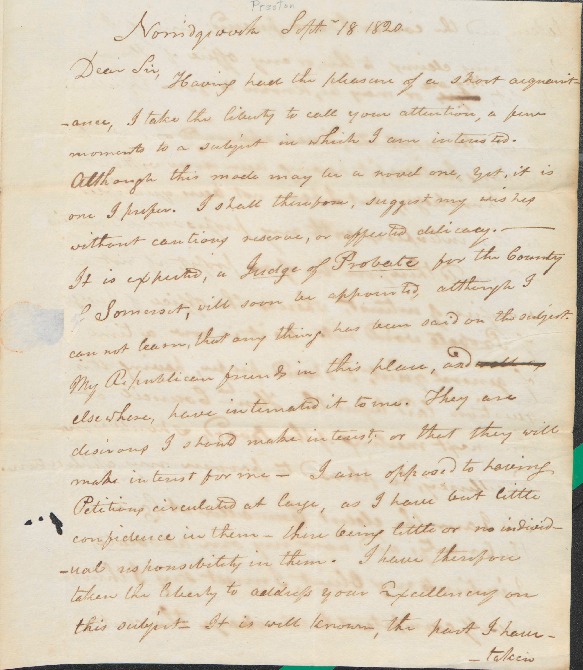 Preston
Norridgwock Sept. 18 1820
Dear Sir,
Having had the pleasure of a short acquaint-
-ance, I take the liberty to call your attention, a few
moments to a subject in which I am interested.
Although this mode may be a novel one, yet, it is
one I prefer. I shall therefore, suggest my wishes
without cautious reserve, or affected delicacy. —
It is expected, a Judge of Probate for the County
of Somerset, will soon be appointed, although I
can not learn, that any thing has been said on the subject.
My Republican friends in this place, and
elsewhere, have intimated it to me. They are
desirous I should make interest, or that they will
make interest for me — I am opposed to having
Petitions circulated at large, as I have but little
confidence in them — there being little or no individ-
-ual responsibility in them. I have therefore
taken the liberty to address your Excellency on
this subject — It is well known, the part I have —
— taken